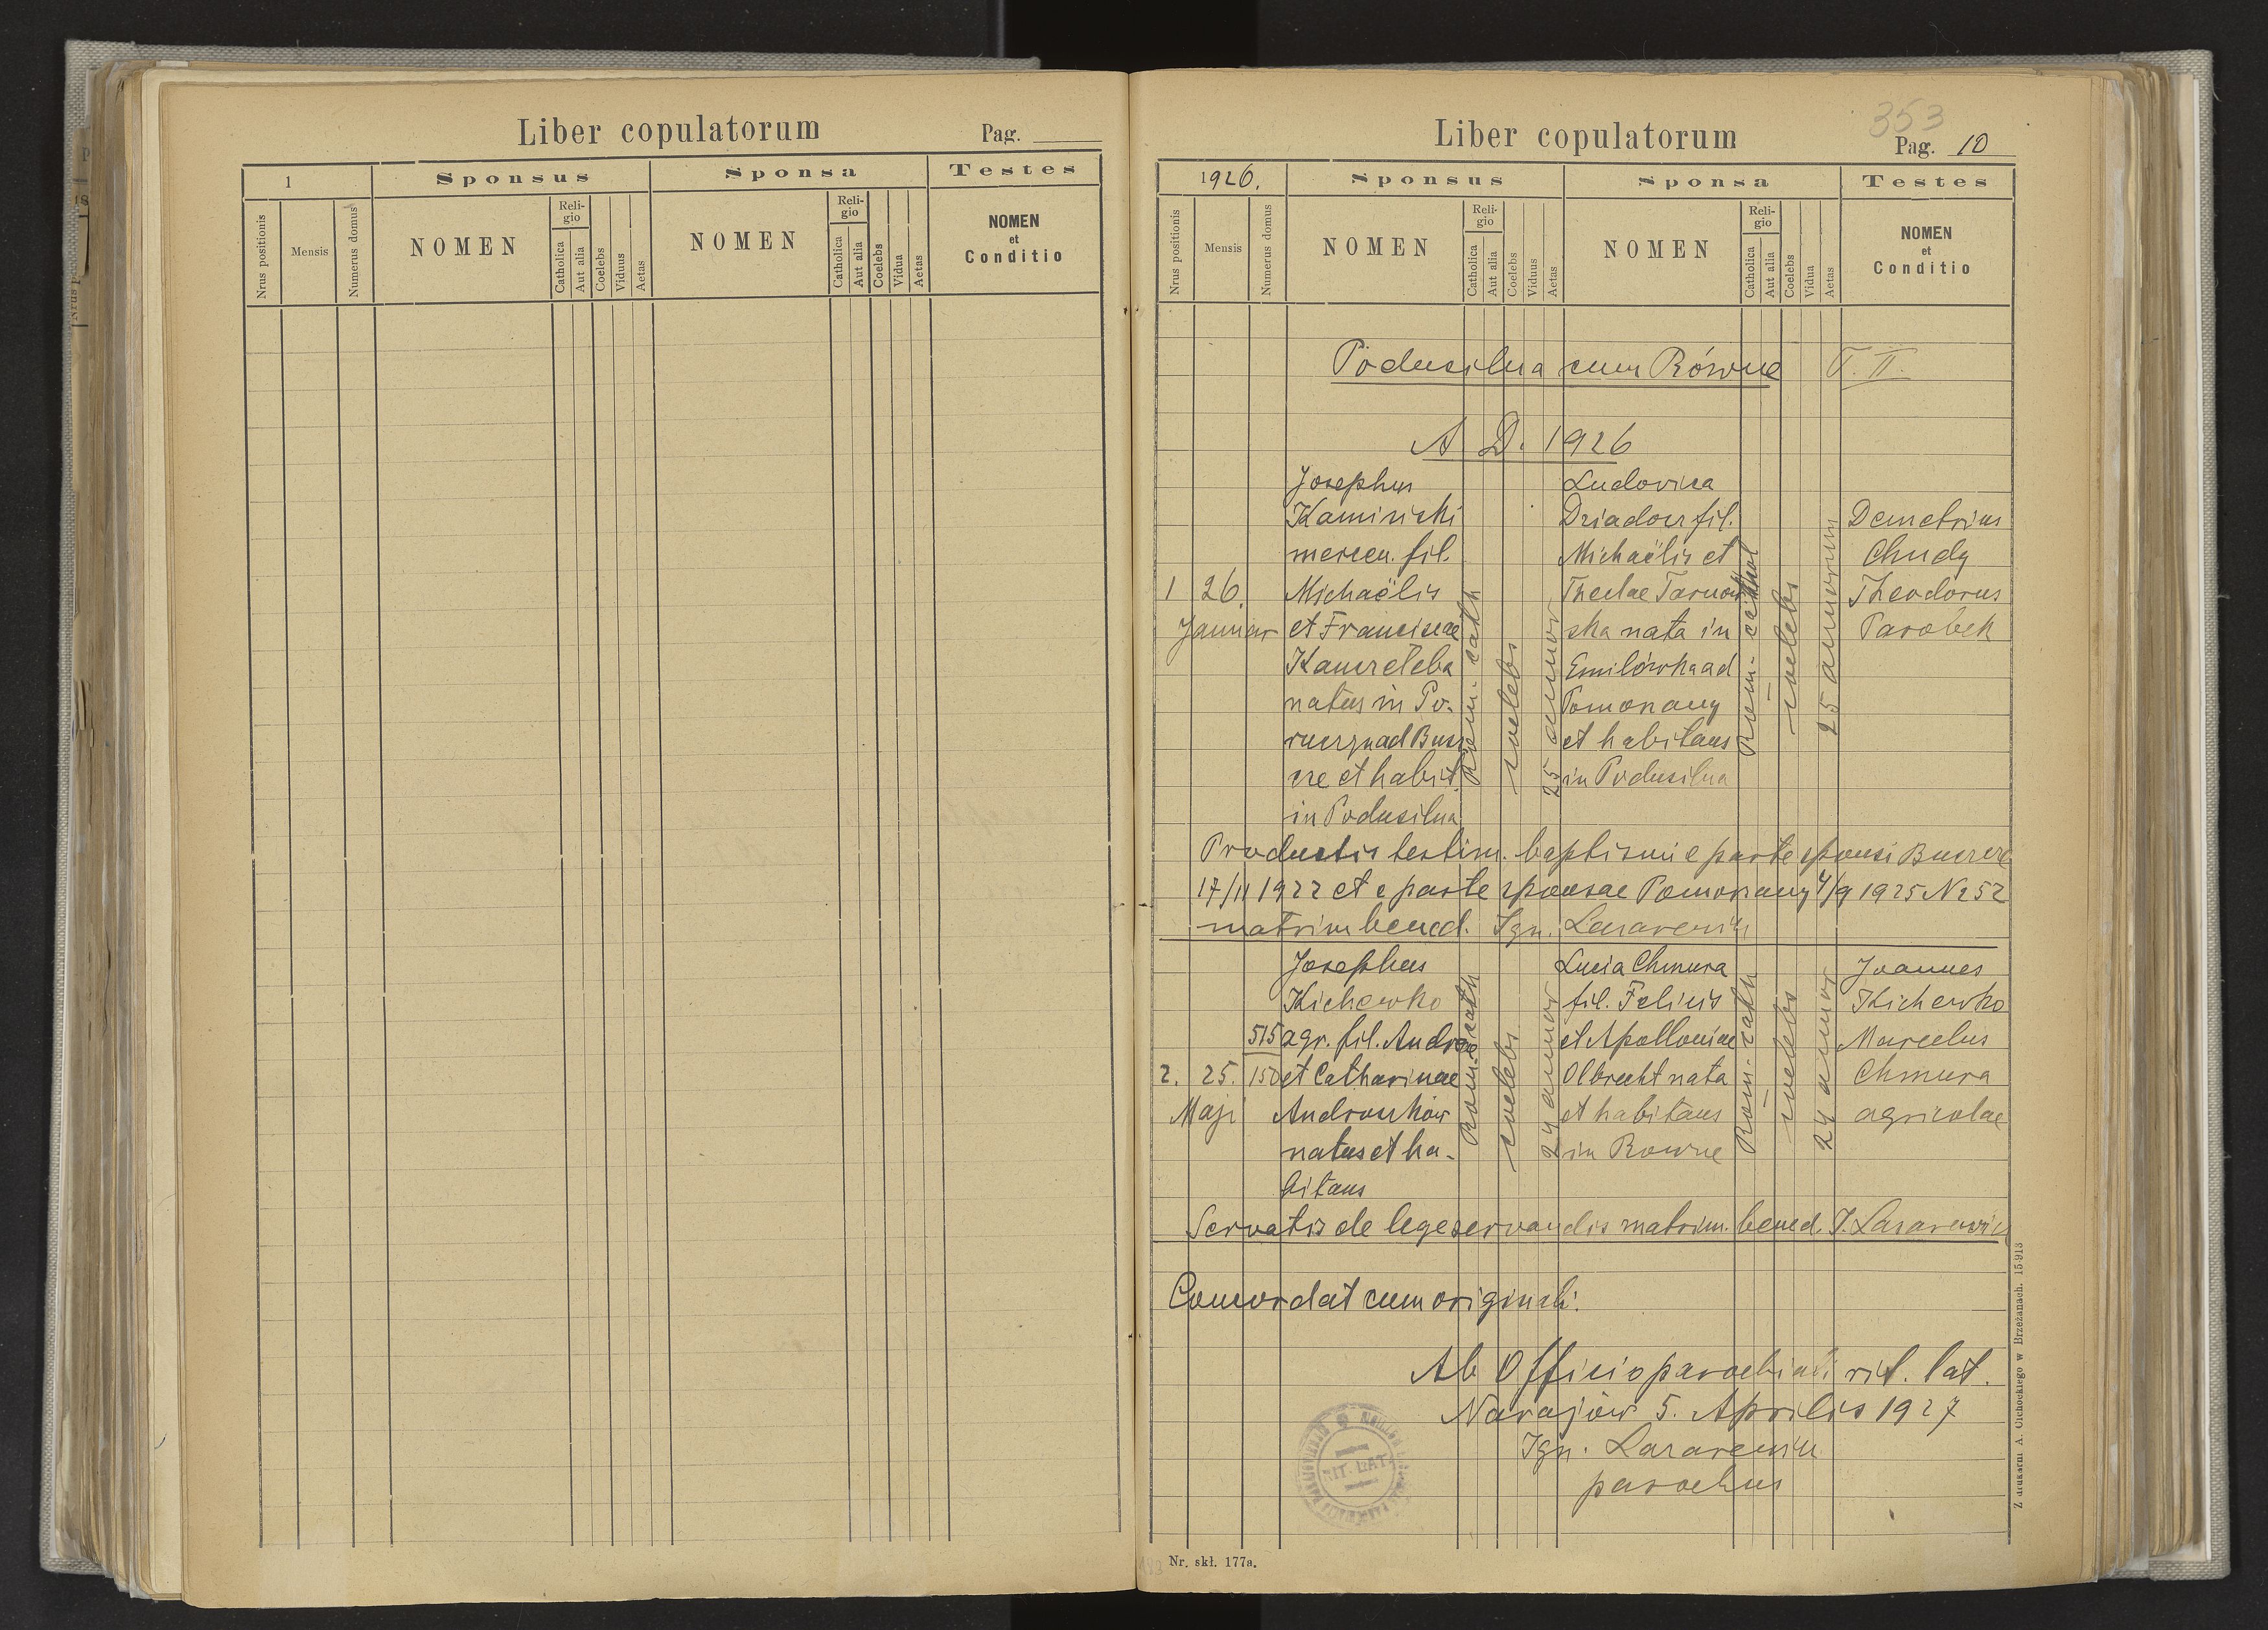 Liber copulatorum
Pag.
1
Sponsus
Sponsa
Testes
Nrus positionis
Mensis
Numerus domus
NOMEN
Religio
Catholica
Aut alia
Coelebs
Viduus
Aetas
NOMEN
Religio
Catholica
Aut alia
Coelebs
Vidua
Aetas
NOMEN
et
Conditio
353
Liber copulatorum
Pag. 10
1926.
Sponsus
Sponsa
Testes
Nrus positionis
Mensis
Numerus domus
NOMEN
Religio
Catholica
Aut alia
Coelebs
Viduus
Aetas
NOMEN
Religio
Catholica
Aut alia
Coelebs
Vidua
Aetas
NOMEN
et
Conditio
Podusilna cum Równe T. II.
A D. 1926
1 26.
Januar
Josephus
Kamiński
mercen. fil.
Michaëlis
et Franciscae
natus in Po-
et habit.
in Podusilna
Rom. cath
coelebs
25 annor
Ludovica
Dziadow fil.
Michaëlis et
Theclae Tarnow
ska nata in
Emilówka ad
Pomorzany
et habitans
in Podusilna
Rom. cathol
coelebs
25 annorum
Demetrius
Chudy
Theodorus
Parobek
Productis testim. baptismi e parte sponsi Buszcze
17/11 1922 et e parte sponsae Pomorzany 4/9 1925 N 252
matrim bened. Ign. Lazarewicz
2. 25.
Maji
515
150
Josephus
Kichewko
agr. fil. Andreae
et Catharinae
Androszków
natus et ha-
bitans
Rom. cath
coelebs
24 annor
Lucia Chmura
fil. Felicis
et Apolloniae
Olbrecht nata
et habitans
in Rowne
Rom. cath
coelebs
24 annor
Joannes
Kichewko
Marcelus
Chmura
agricolae
Servatis de lege servandis matrim. bened. I. Lazarewicz
Concordat cum originali.
Ab Officio parochiali rit. lat.
Narajów 5. Aprilis 1927
Ign. Lazarewicz
parochus
RIT. LAT.
Nr. skł. 177a.
Z drukarni A. Cichockiego w Brzeżanach. 15·913